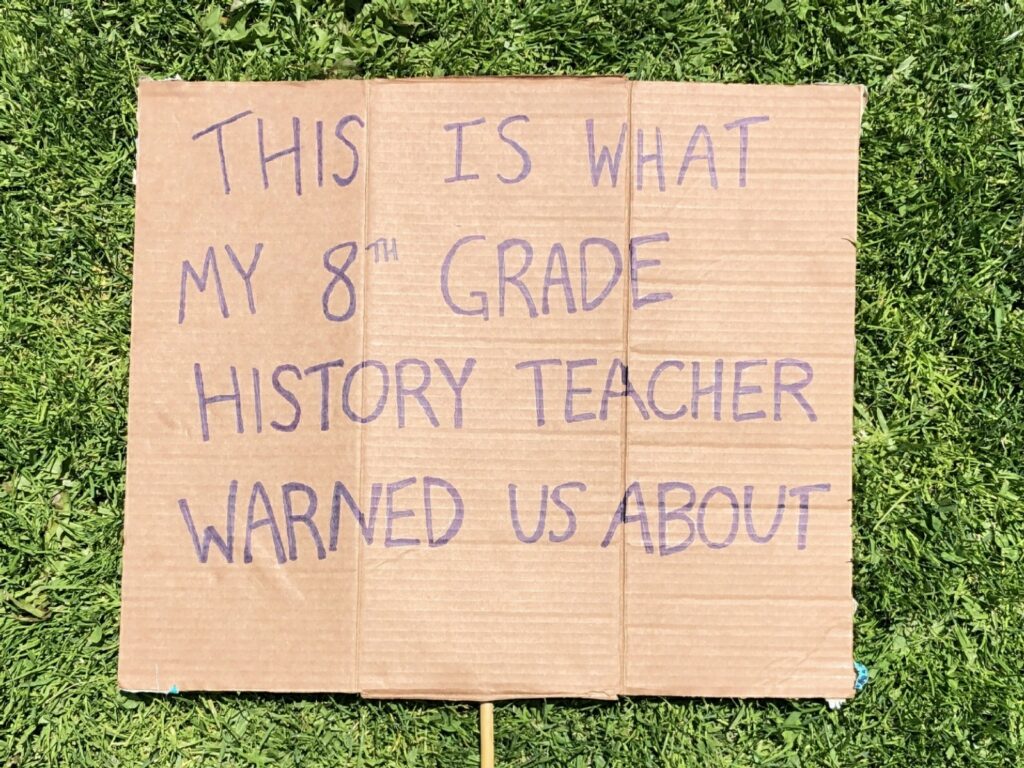 THIS IS WHAT
MY 8TH GRADE
HISTORY TEACHER
WARNED US ABOUT